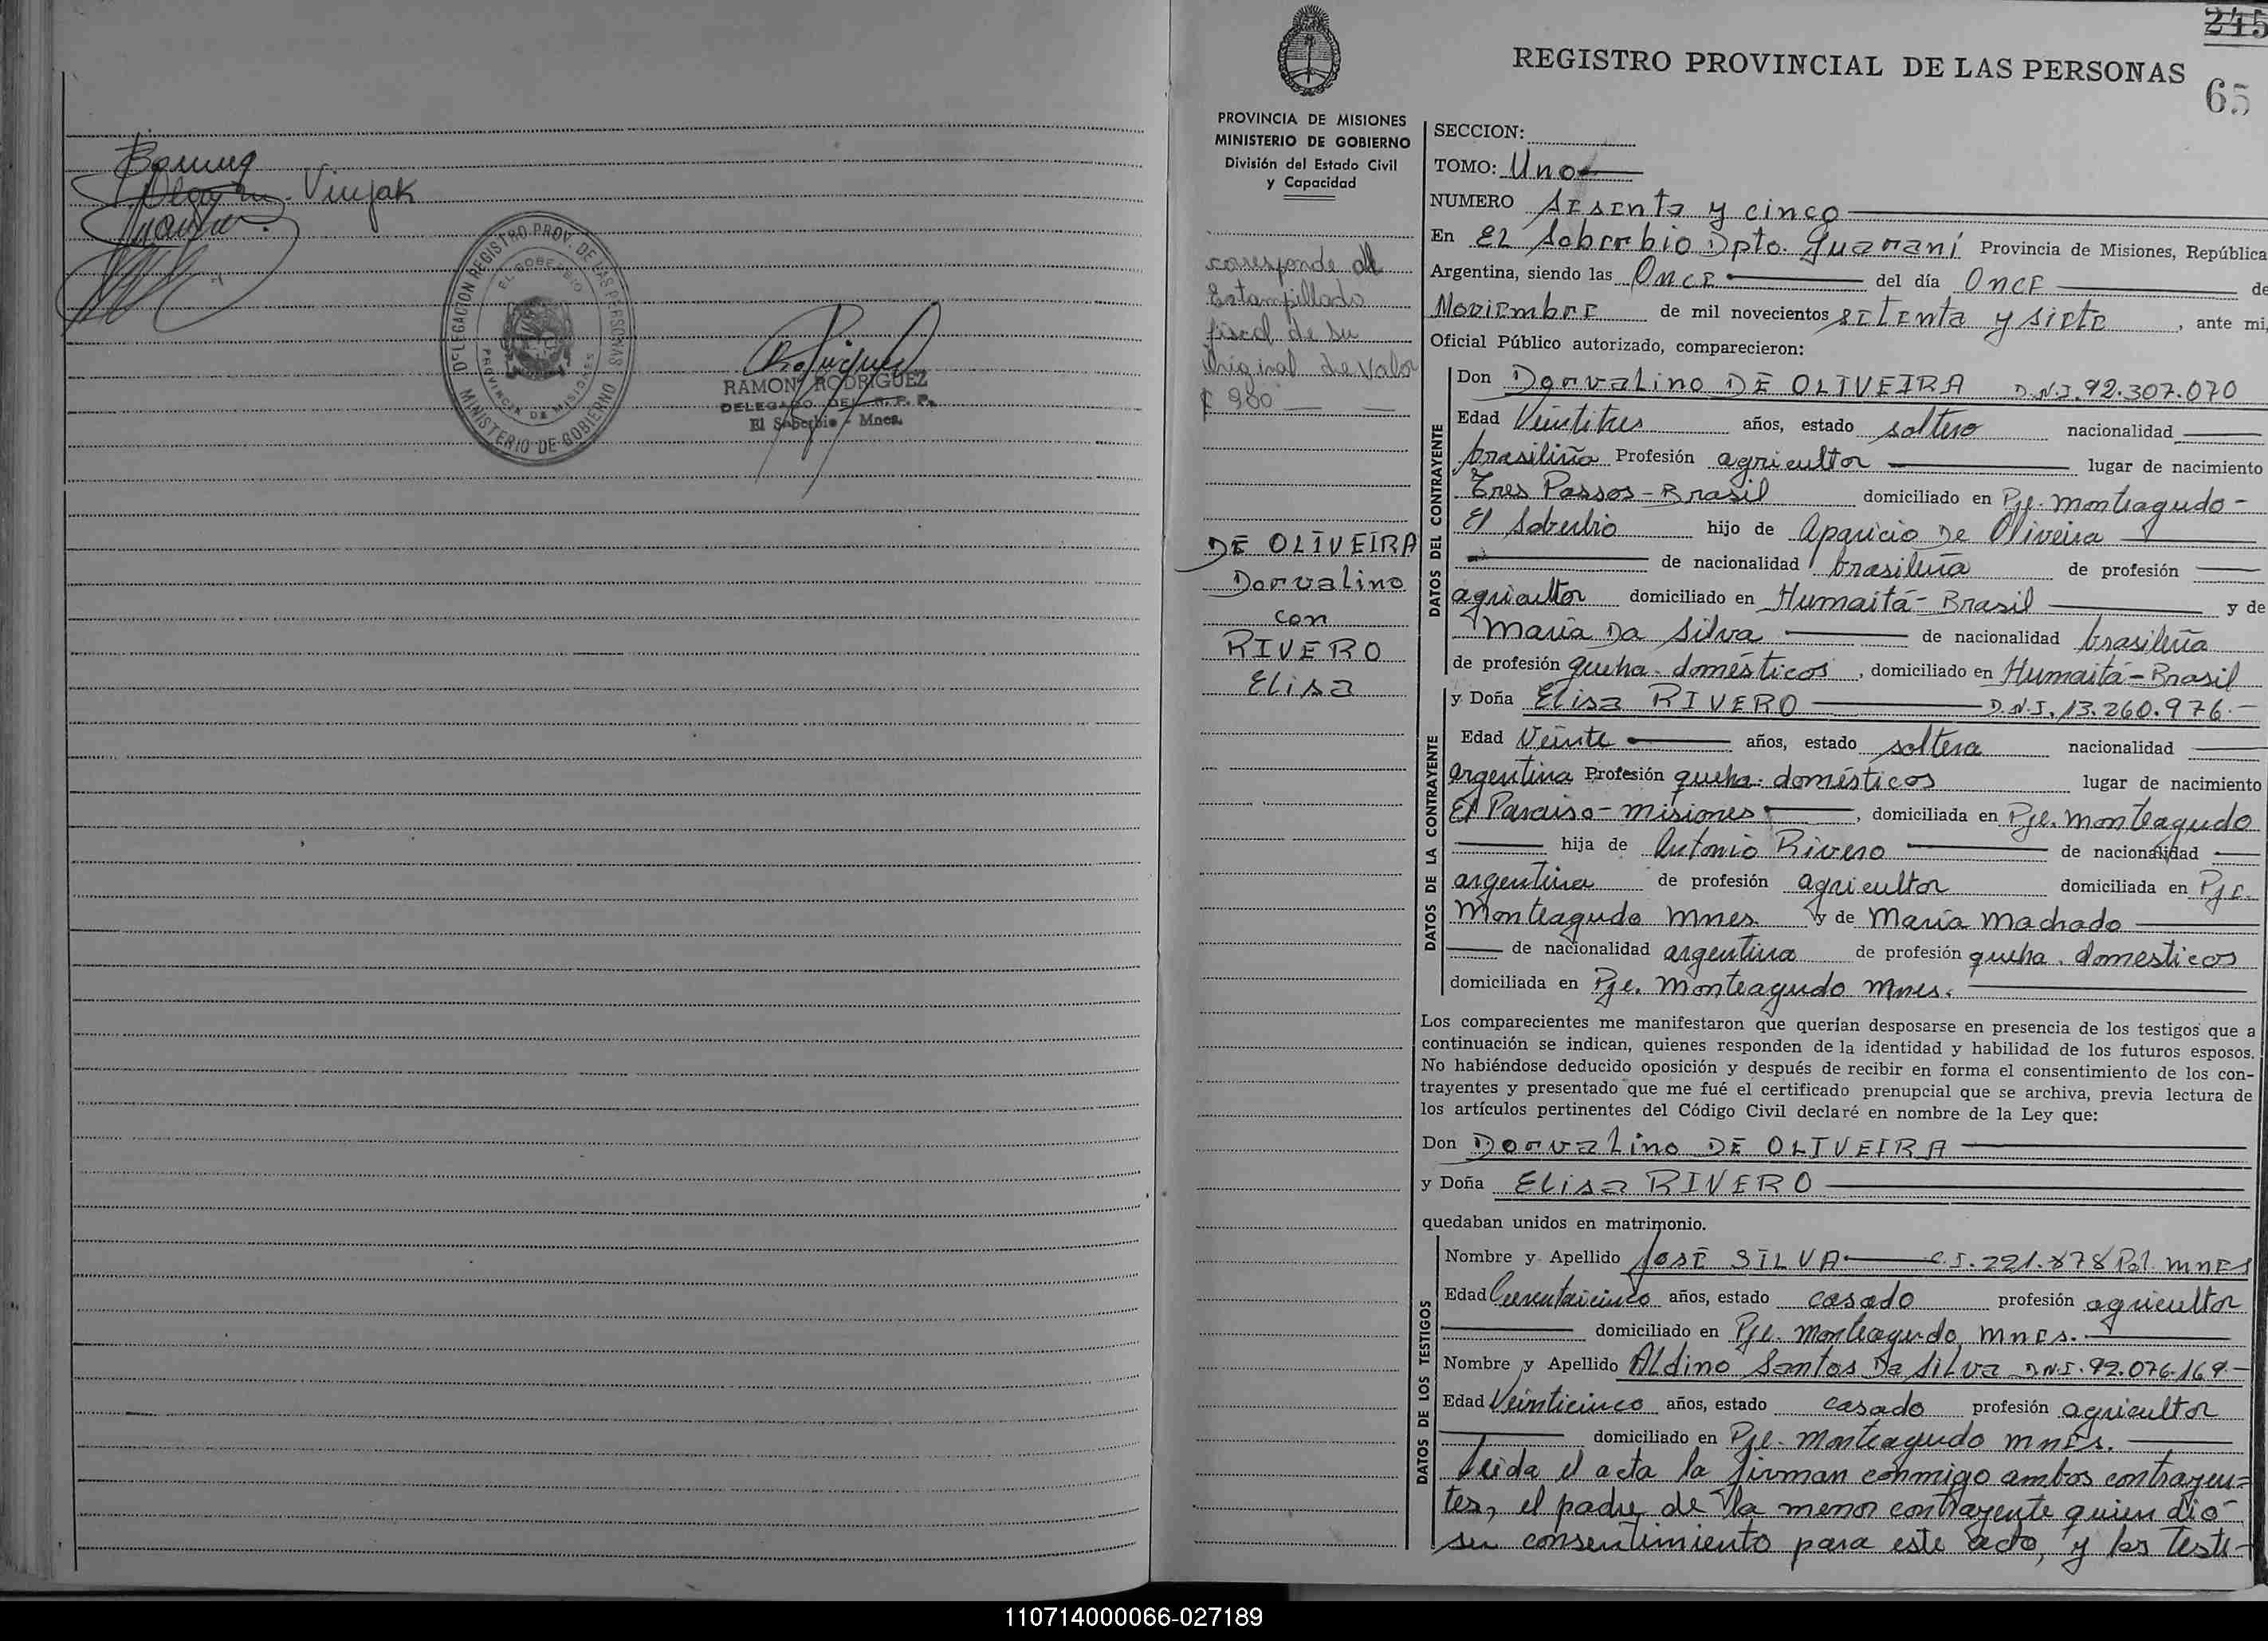 Vinjak
DELEGACION REGISTRO PROV. DE LAS PERSONAS
EL SOBERBIO
PROVINCIA DE MISIONES
MINISTERIO DE GOBIERNO
RAMON RODRIGUEZ
DELEGADO DEL R. P. P.
El Soberbio - Mnes.
245
REGISTRO PROVINCIAL DE LAS PERSONAS
65
PROVINCIA DE MISIONES
MINISTERIO DE GOBIERNO
División del Estado Civil
y Capacidad
coresponde al
Estampillado
fiscal de su
Original de valor
$ 900
DE OLIVEIRA
Dorvalino
con
RIVERO
Elisa
SECCION:
TOMO: Uno
NUMERO sesenta y cinco
En EL Soberbio Dpto. Guaraní Provincia de Misiones, República
Argentina, siendo las Once del día Once de
Noviembre de mil novecientos setenta y siete, ante mi,
Oficial Público autorizado, comparecieron:
DATOS DEL CONTRAYENTE
Don Dorvalino DE OLIVEIRA D.N.I. 92.307.070
Edad Veintitres años, estado soltero nacionalidad
brasiliña Profesión agricultor lugar de nacimiento
Tres Passos - Brasil domiciliado en Pje. Monteagudo -
El Soberbio hijo de Aparicio De Oliveira
de nacionalidad brasileña de profesión
agricultor domiciliado en Humaitá - Brasil y de
María Da Silva de nacionalidad brasileña
de profesión queha. domésticos, domiciliado en Humaitá - Brasil
DATOS DE LA CONTRAYENTE
y Doña Elisa RIVERO D.N.I. 13.260.976.-
Edad Veinte años, estado soltera nacionalidad
argentina Profesión queha. domésticos lugar de nacimiento
El Paraiso - Misiones, domiciliada en Pje. Monteagudo
hija de Antonio Rivero de nacionalidad
argentina de profesión agricultor domiciliada en Pje.
Monteagudo Mnes. y de María Machado
de nacionalidad argentina de profesión queha. domesticos
domiciliada en Pje. Monteagudo Mnes.
Los comparecientes me manifestaron que querían desposarse en presencia de los testigos que a
continuación se indican, quienes responden de la identidad y habilidad de los futuros esposos.
No habiéndose deducido oposición y después de recibir en forma el consentimiento de los con-
trayentes y presentado que me fué el certificado prenupcial que se archiva, previa lectura de
los artículos pertinentes del Código Civil declaré en nombre de la Ley que:
Don Dorvalino DE OLIVEIRA
y Doña Elisa RIVERO
quedaban unidos en matrimonio.
DATOS DE LOS TESTIGOS
Nombre y Apellido JOSÉ SILVA C.I. 221.878 Pol. Mnes
Edad Cuarentaicinco años, estado casado profesión agricultor
domiciliado en Pje. Monteagudo Mnes.
Nombre y Apellido Aldino Santos Da Silva D.N.I. 92.076.169.-
Edad Veinticinco años, estado casado profesión agricultor
domiciliado en Pje. Monteagudo Mnes.
Leida el acta la firman conmigo ambos contrayen=
tes, el padre de la menor contrayente quien dió
su consentimiento para este acto, y los testi-
110714000066-027189